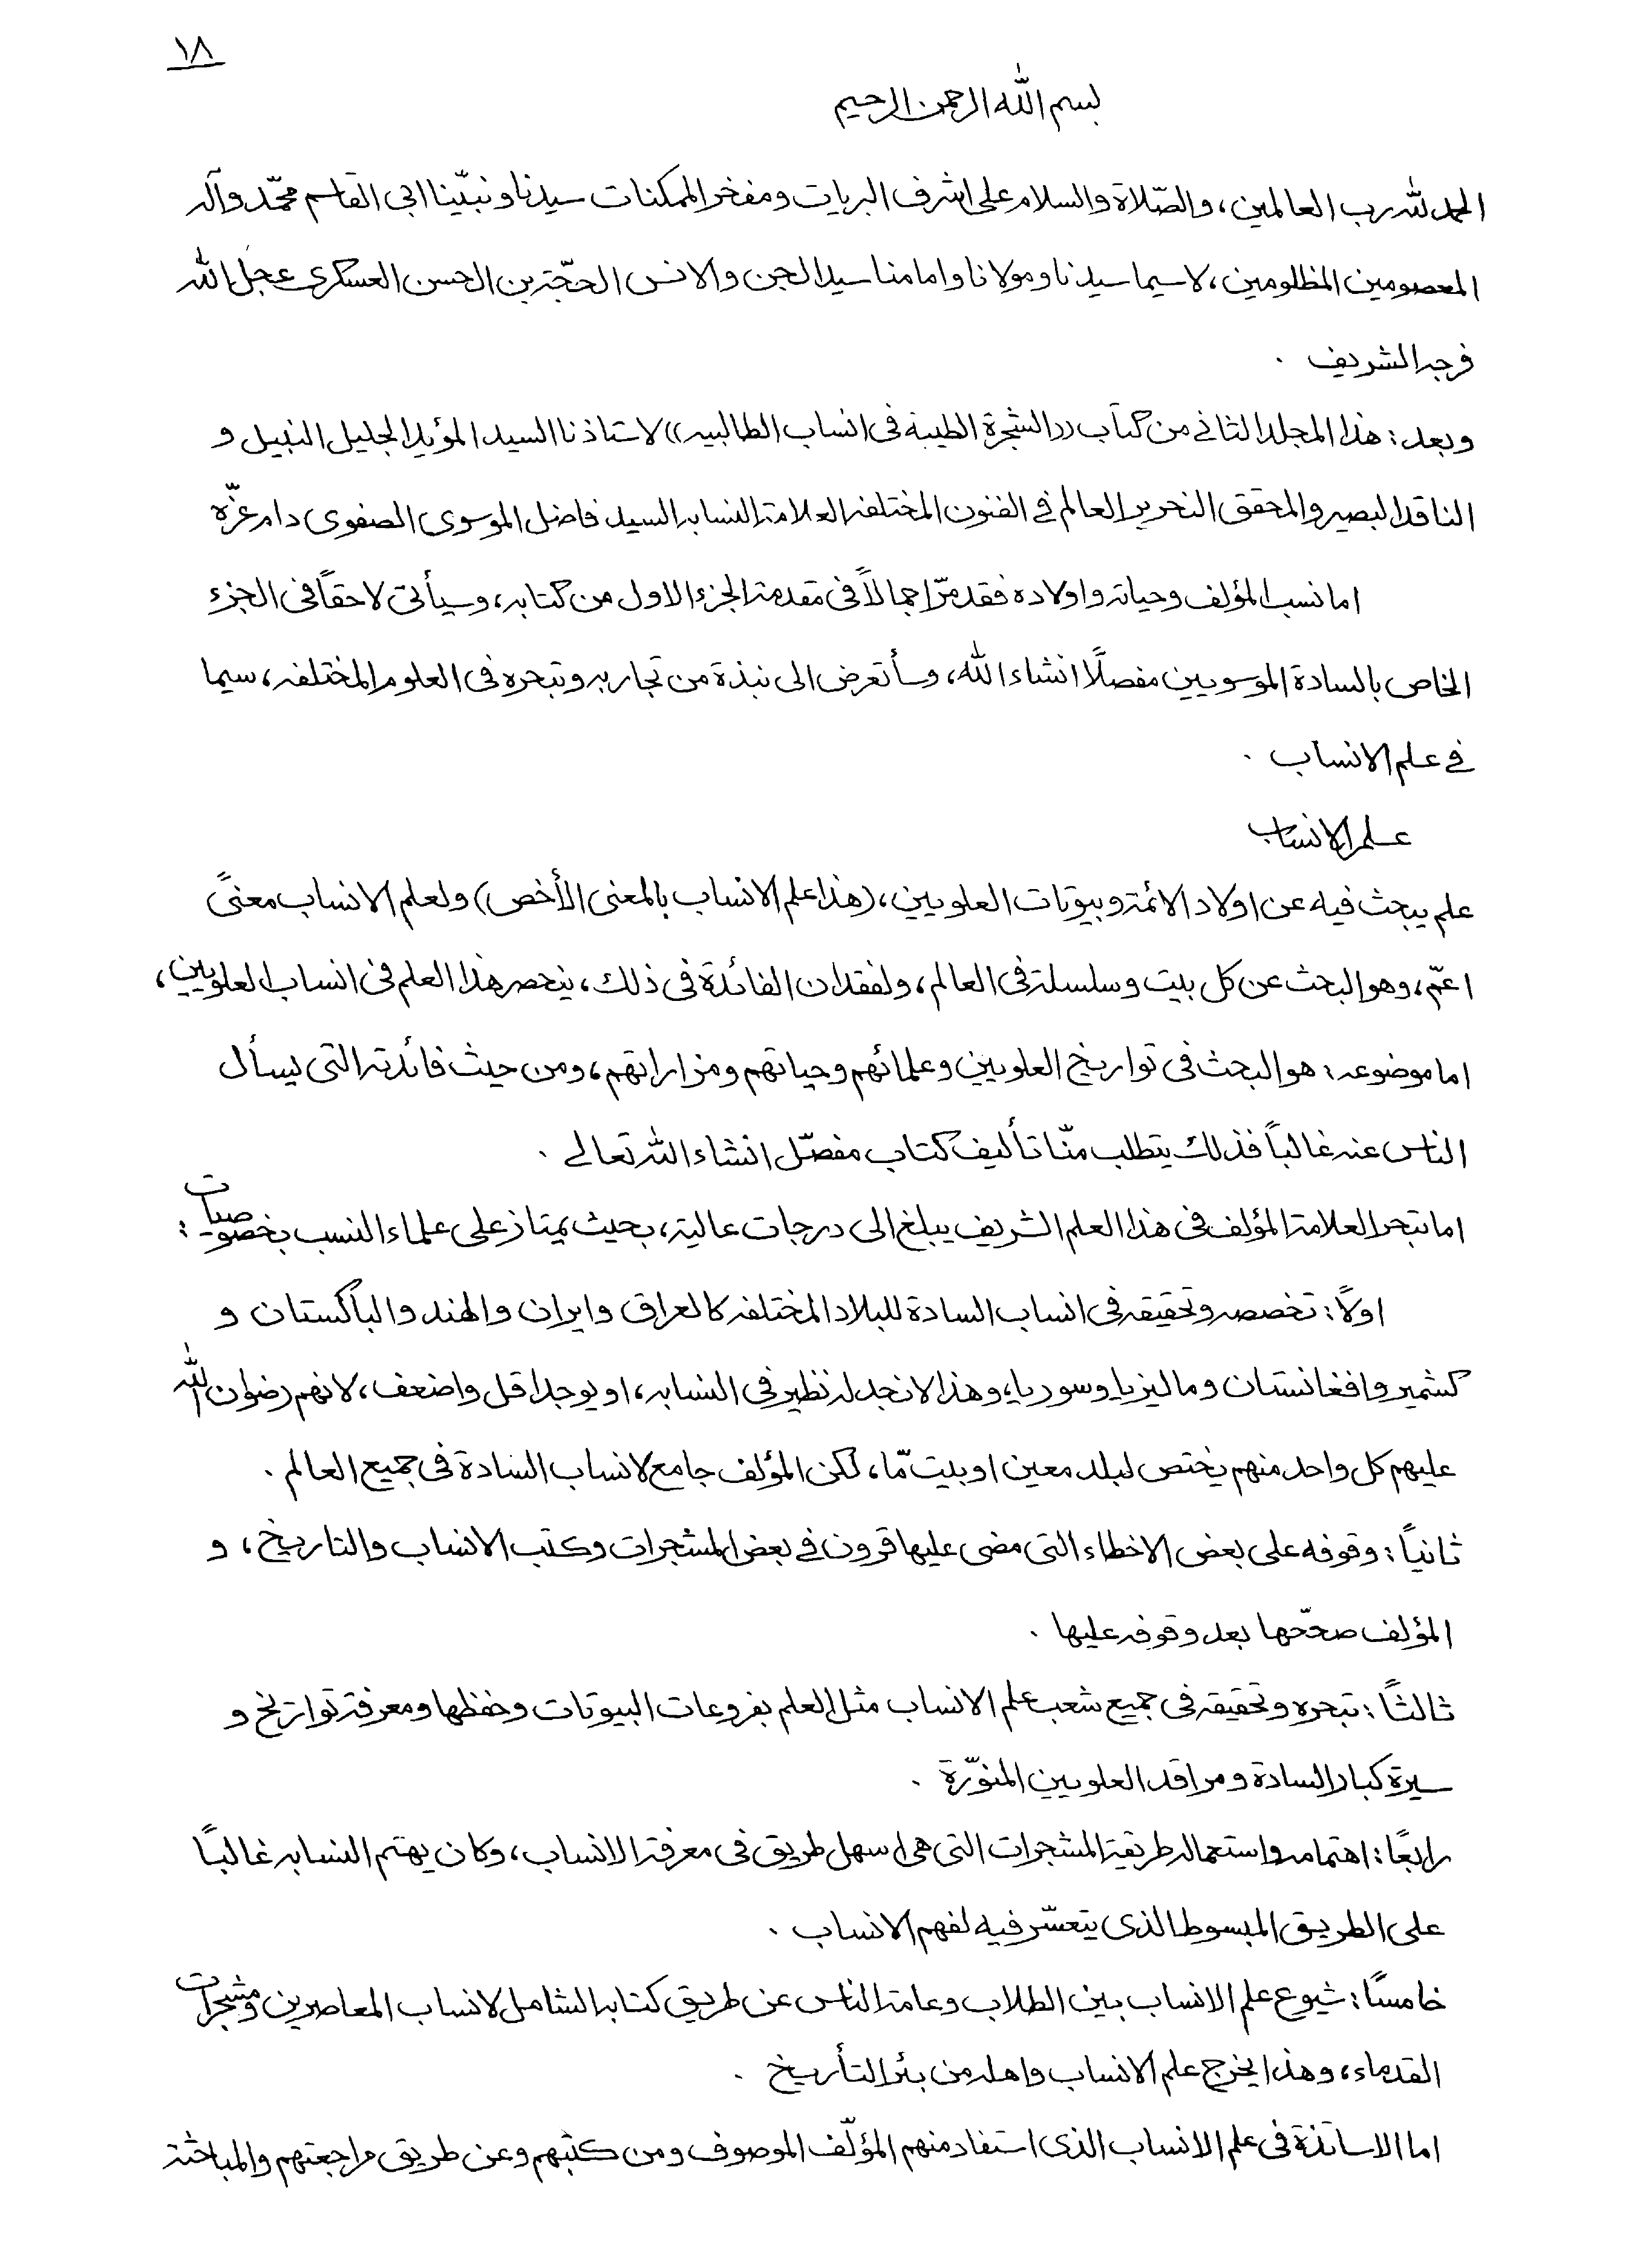 ١٨
بسم الله الرحمن الرحيم
الحمد لله رب العالمين، والصّلاة والسلام على اشرف البريات ومفخر الممكنات سيدنا ونبيّنا ابى القاسم محمّد وآله
المعصومين المظلومين، لاسيما سيدنا ومولانا وامامنا سيد الجن والانس الحجّة بن الحسن العسكرى عجل الله
فرجه الشريف .
وبعد: هذا المجلد الثانى من كتاب ((الشجرة الطيبة فى انساب الطالبيه)) لاستاذنا السيد المؤيد الجليل النبيل و
الناقد البصير والمحقق النحرير العالم فى الفنون المختلفه العلامة النسابه السيد فاضل الموسوى الصفوى دام عزّه
اما نسب المؤلف وحياته واولاده فقد مرّ اجمالاً فى مقدمة الجزء الاول من كتابه، وسيأتى لاحقاً فى الجزء
الخاص بالسادة الموسويين مفصلاً انشاء الله، وسأتعرض الى نبذة من تجاربه وتبحره فى العلوم المختلفه، سيما
فى علم الانساب .
علم الانساب
علم يبحث فيه عن اولاد الائمة وبيوتات العلويين، (هذا علم الانساب بالمعنى الأخص) ولعلم الانساب معنىً
اعمّ، وهو البحث عن كل بيت وسلسلة فى العالم، ولفقدان الفائدة فى ذلك، ينحصر هذا العلم فى انساب العلويين،
اما موضوعه: هو البحث فى تواريخ العلويين وعلمائهم وحياتهم ومزاراتهم، ومن حيث فائدته التى يسأل
الناس عنه غالباً فذلك يتطلب منّا تأليف كتاب مفصّل انشاء الله تعالى .
اما تبحر العلامة المؤلف فى هذا العلم الشريف يبلغ الى درجات عالية، بحيث يمتاز على علماء النسب بخصوصيات :
اولاً: تخصصه وتحقيقه فى انساب السادة للبلاد المختلفه كالعراق وايران والهند والباكستان و
كشمير وافغانستان وماليزيا وسوريا، وهذا لانجد له نظير فى النسابه، او يوجد اقل واضعف، لانهم رضوان الله
عليهم كل واحد منهم يختص لبلد معين او بيت مّا، لكن المؤلف جامع لانساب السادة فى جميع العالم .
ثانياً: وقوفه على بعض الاخطاء التى مضى عليها قرون فى بعض المشجرات وكتب الانساب والتاريخ، و
المؤلف صححّها بعد وقوفه عليها .
ثالثاً: تبحره وتحقيقه فى جميع شعب علم الانساب مثل العلم بفروعات البيوتات وحفظها ومعرفة تواريخ و
سيرة كبار السادة ومراقد العلويين المنوّرة .
رابعًا: اهتمامه واستعماله طريقة المشجرات التى هى اسهل طريق فى معرفة الانساب، وكان يهتم النسابه غالباً
على الطريق المبسوط الذى يتعسّر فيه لفهم الانساب .
خامسًا: شيوع علم الانساب بين الطلاب وعامة الناس عن طريق كتابه الشامل لانساب المعاصرين ومشجرات
القدماء، وهذا يخرج علم الانساب واهله من بئر التأريخ .
اما الاساتذة فى علم الانساب الذى استفاد منهم المؤلّف الموصوف ومن كتبهم وعن طريق مراجعتهم والمباحثة